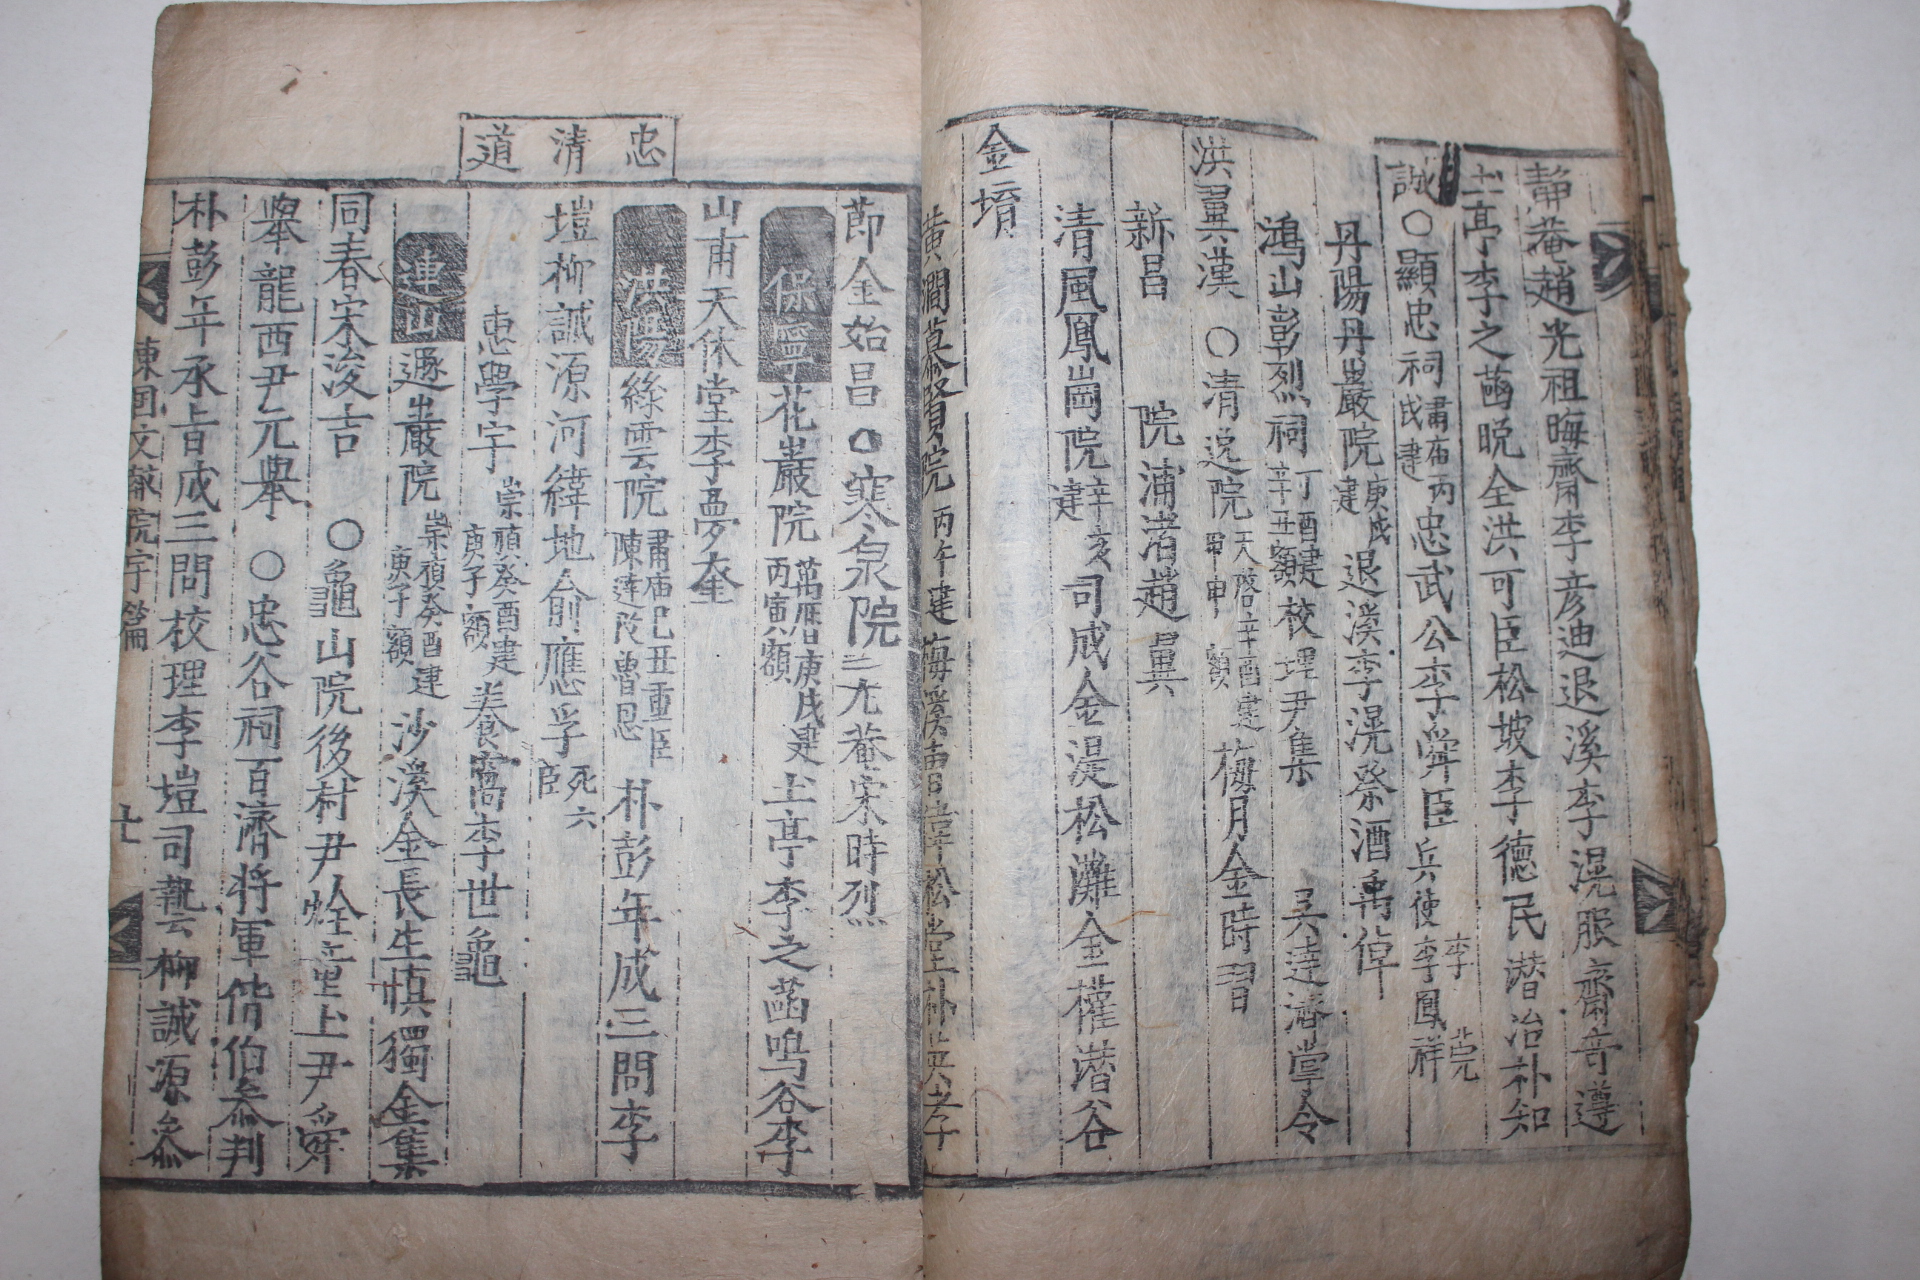 靜菴趙光祖晦齋李彦迪退溪李滉服齋奇遵
土亭李之菡晩全洪可臣松坡李德民潜冶朴知
誡○顯忠祠肅庙丙戌建忠武公李舜臣兵使李鳳祥李莞
丹陽丹巖院庚戌建退溪李滉祭酒禹倬
鴻山彰烈祠丁酉建辛丑額校理尹集 吳達濟掌令
洪翼漢 ○清逸院天啓辛酉建甲申額梅月金時習
新昌 院浦渚趙翼
清風鳳崗院辛亥建司成金湜松灘金權潜谷
金堉
黄澗慕賢院丙午建梅溪曺偉松堂朴英
忠清道
節金始昌○寒泉院 尤菴宋時烈
保寧花巖院萬曆庚戌建丙寅額土亭李之菡鳴谷李
山甫天休堂李夢奎
洪陽綠雲院肅庙己丑重建陳達改魯恩 朴彭年成三問李
塏柳誠源河緯地俞應孚死六臣
惠學宇崇禎癸酉建庚子額養窩李世龜
連山遯巖院崇禎癸酉建庚子額沙溪金長生愼獨金集
同春宋浚吉 ○龜山院後村尹烇童土尹舜
擧龍西尹元擧 ○忠谷祠百濟將軍偕伯參判
朴彭年承旨成三問校理李塏司藝柳誠源參
東國文献院宇篇 十